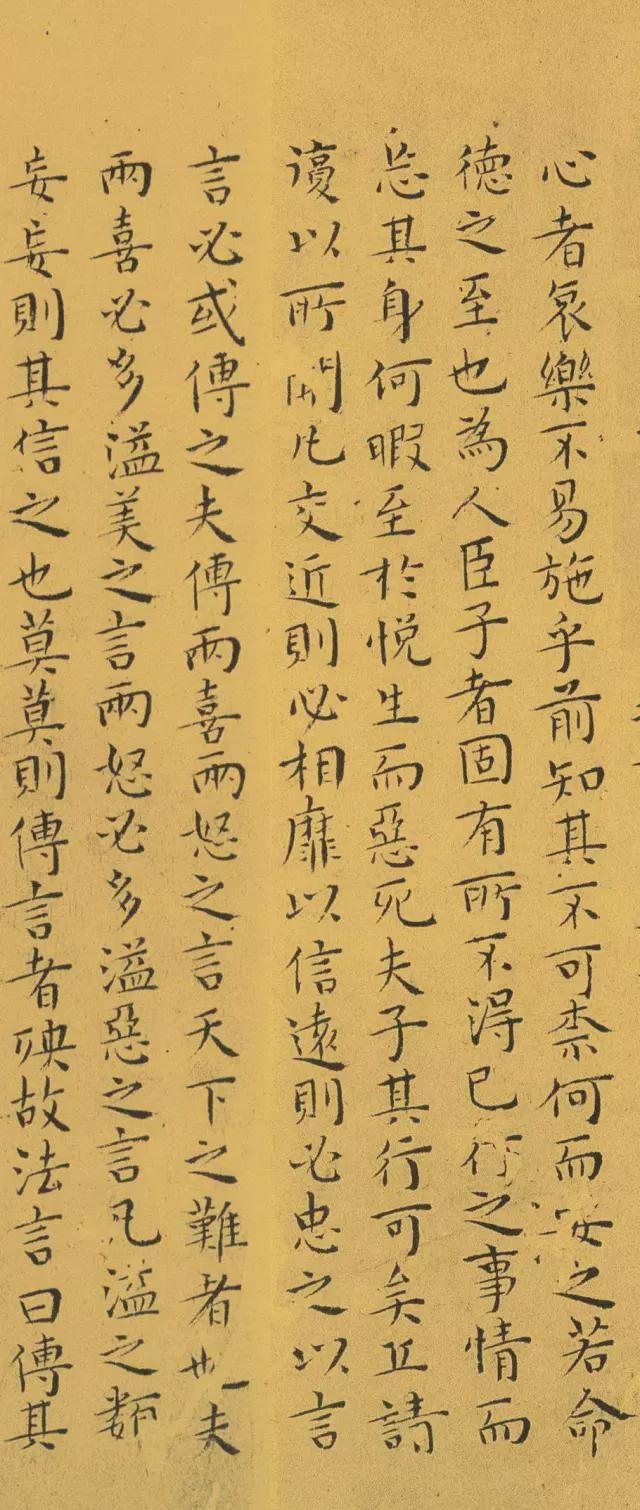 心者哀樂不易施乎前知其不可柰何而安之若命
德之至也為人臣子者固有所不得已行之事情而
忘其身何暇至於悅生而惡死夫子其行可矣丘請
復以所聞凡交近則必相靡以信遠則必忠之以言
言必或傳之夫傳兩喜兩怒之言天下之難者也夫
兩喜必多溢美之言兩怒必多溢惡之言凡溢之類
妄妄則其信之也莫莫則傳言者殃故法言曰傳其